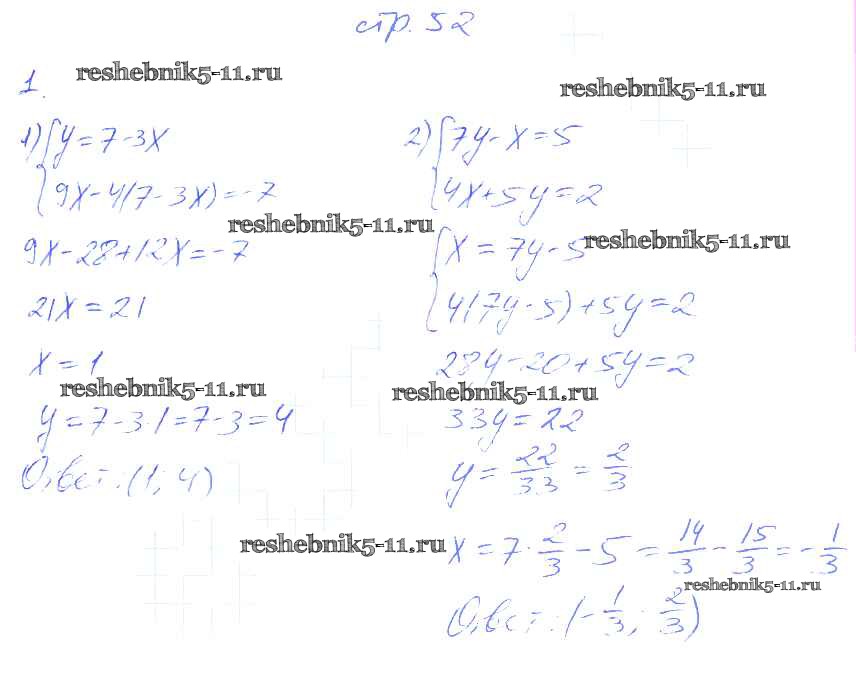 стр. 52
reshebnik5-11.ru
1.
reshebnik5-11.ru
1) { y = 7 - 3x
9x - 4(7 - 3x) = -7
reshebnik5-11.ru
9x - 28 + 12x = -7
21x = 21
x = 1
reshebnik5-11.ru
y = 7 - 3·1 = 7 - 3 = 4
Ответ: (1; 4)
2) { 7y - x = 5
4x + 5y = 2
{ x = 7y - 5
reshebnik5-11.ru
4(7y - 5) + 5y = 2
28y - 20 + 5y = 2
reshebnik5-11.ru
33y = 22
y = 22/33 = 2/3
reshebnik5-11.ru
x = 7 · 2/3 - 5 = 14/3 - 15/3 = -1/3
reshebnik5-11.ru
Ответ: (-1/3; 2/3)